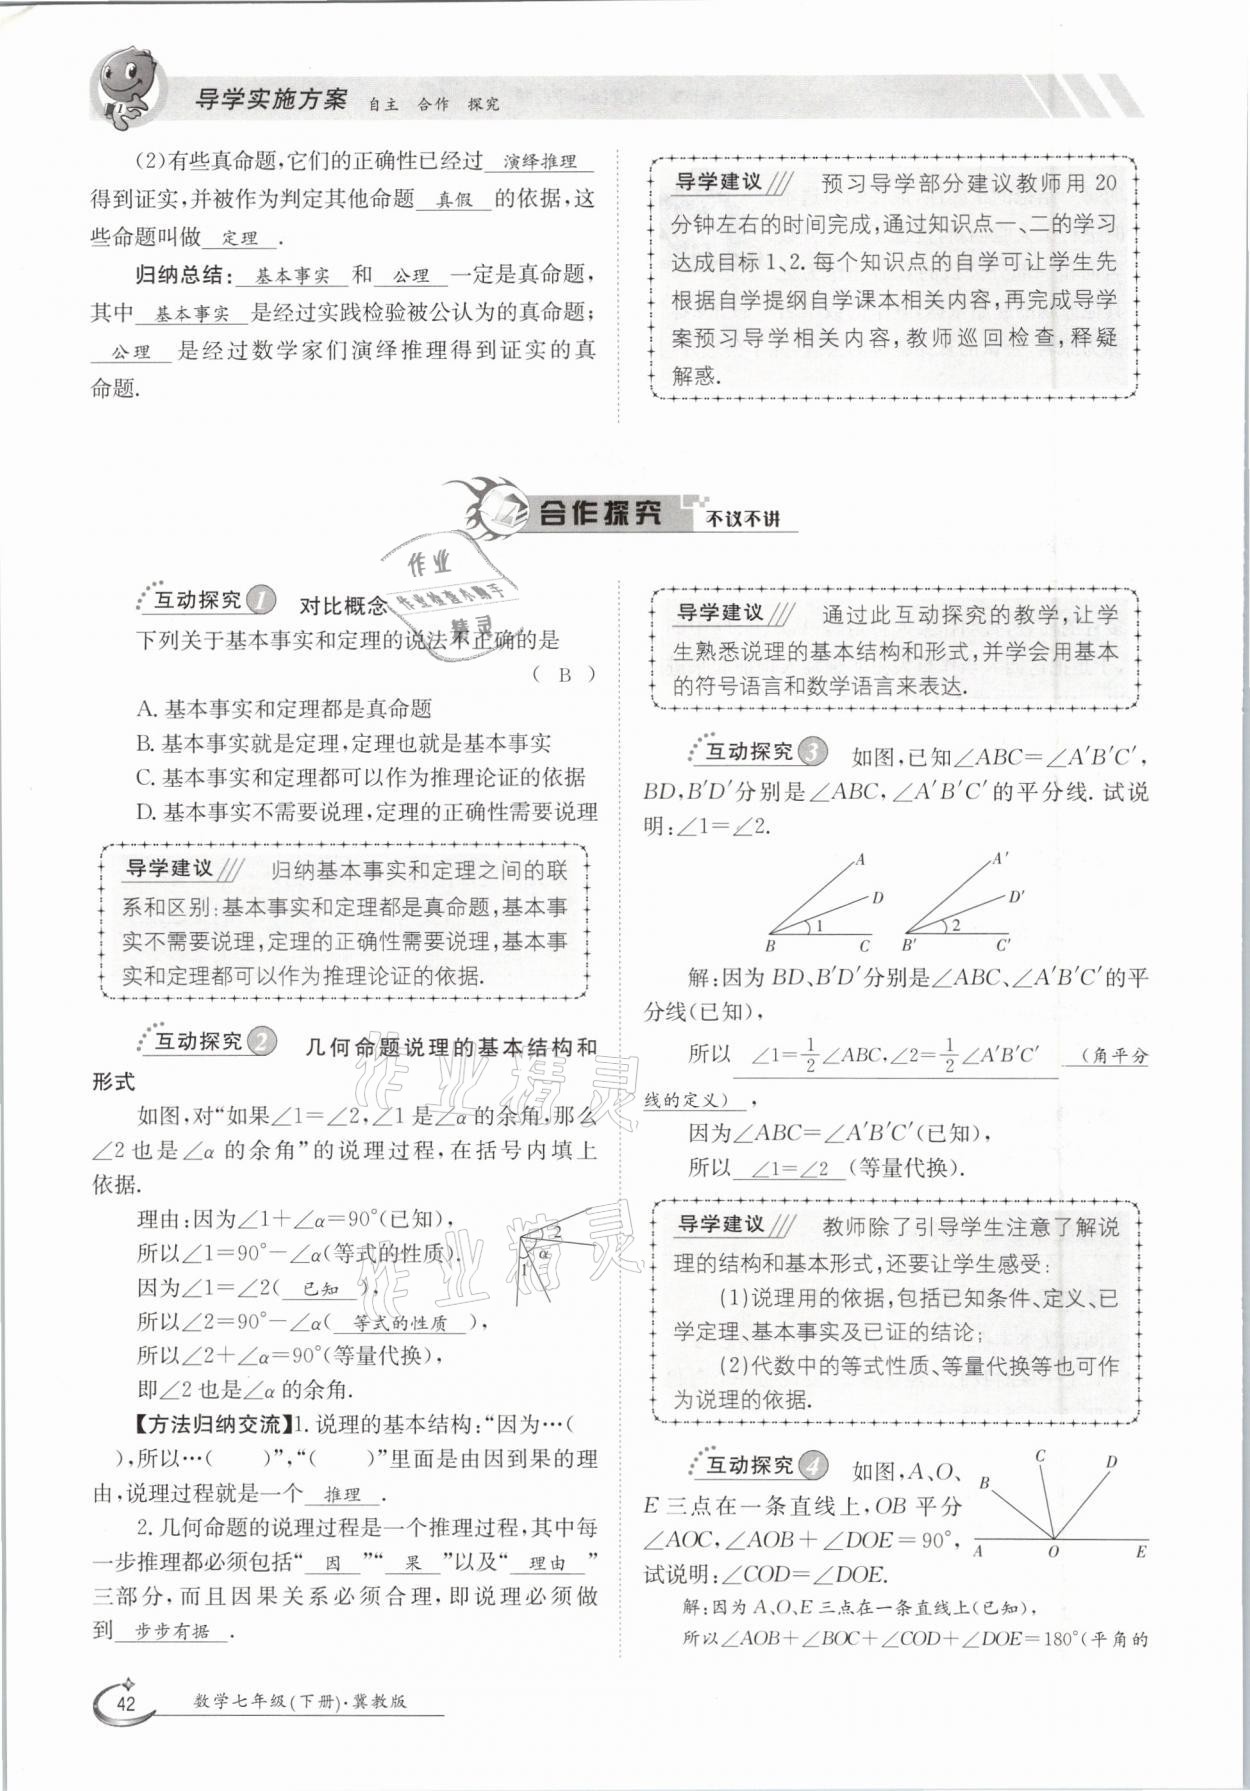 导学实施方案 自主 合作 探究
(2)有些真命题,它们的正确性已经过 演绎推理
得到证实,并被作为判定其他命题 真假 的依据,这
些命题叫做 定理 .
归纳总结: 基本事实 和 公理 一定是真命题,
其中 基本事实 是经过实践检验被公认为的真命题;
公理 是经过数学家们演绎推理得到证实的真
命题.
导学建议 预习导学部分建议教师用 20
分钟左右的时间完成,通过知识点一、二的学习
达成目标1、2.每个知识点的自学可让学生先
根据自学提纲自学课本相关内容,再完成导学
案预习导学相关内容,教师巡回检查,释疑
解惑.
合作探究 不议不讲
互动探究1 对比概念
下列关于基本事实和定理的说法不正确的是
( B )
A. 基本事实和定理都是真命题
B. 基本事实就是定理,定理也就是基本事实
C. 基本事实和定理都可以作为推理论证的依据
D. 基本事实不需要说理,定理的正确性需要说理
导学建议 归纳基本事实和定理之间的联
系和区别:基本事实和定理都是真命题,基本事
实不需要说理,定理的正确性需要说理,基本事
实和定理都可以作为推理论证的依据.
互动探究2 几何命题说理的基本结构和
形式
如图,对“如果∠1=∠2,∠1是∠α的余角,那么
∠2也是∠α的余角”的说理过程,在括号内填上
依据.
理由:因为∠1+∠α=90°(已知),
所以∠1=90°-∠α(等式的性质).
因为∠1=∠2( 已知 ),
所以∠2=90°-∠α( 等式的性质 ),
所以∠2+∠α=90°(等量代换),
即∠2也是∠α的余角.
2
α
1
【方法归纳交流】1. 说理的基本结构:“因为…(
),所以…( )”,“( )”里面是由因到果的理
由,说理过程就是一个 推理 .
2. 几何命题的说理过程是一个推理过程,其中每
一步推理都必须包括“ 因 ”“ 果 ”以及“ 理由 ”
三部分,而且因果关系必须合理,即说理必须做
到 步步有据 .
导学建议 通过此互动探究的教学,让学
生熟悉说理的基本结构和形式,并学会用基本
的符号语言和数学语言来表达.
互动探究3 如图,已知∠ABC=∠A′B′C′,
BD,B′D′分别是∠ABC,∠A′B′C′的平分线.试说
明:∠1=∠2.
A D 1 B C
A′ D′ 2 B′ C′
解:因为BD、B′D′分别是∠ABC、∠A′B′C′的平
分线(已知),
所以 ∠1=1/2∠ABC,∠2=1/2∠A′B′C′ (角平分
线的定义) ,
因为∠ABC=∠A′B′C′(已知),
所以 ∠1=∠2 (等量代换).
导学建议 教师除了引导学生注意了解说
理的结构和基本形式,还要让学生感受:
(1)说理用的依据,包括已知条件、定义、已
学定理、基本事实及已证的结论;
(2)代数中的等式性质、等量代换等也可作
为说理的依据.
互动探究4 如图,A、O、
E三点在一条直线上,OB平分
∠AOC,∠AOB+∠DOE=90°,
试说明:∠COD=∠DOE.
C D B A O E
解:因为A、O、E三点在一条直线上(已知),
所以∠AOB+∠BOC+∠COD+∠DOE=180°(平角的
42 数学七年级(下册)·冀教版
作业
作业检查小助手
精灵
作业精灵
作业精灵